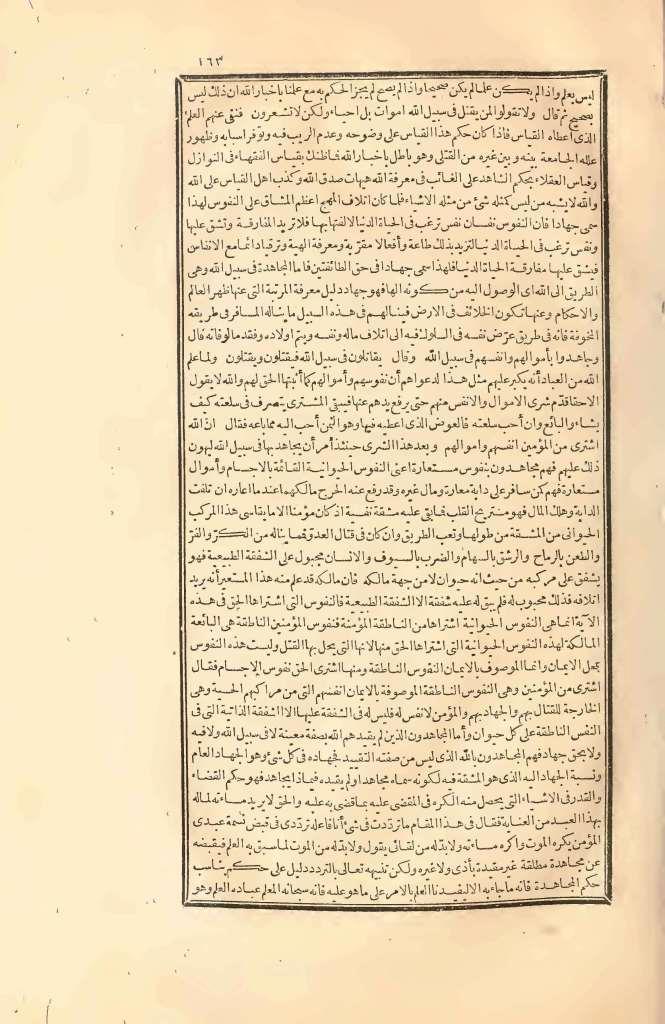 ١٦٣
ليس يعلم واذا لم يكن علما لم يكن صحيحا واذا لم يصح لم يجز الحكم به مع علمنا باخبار الله ان ذلك ليس
بصحيح ثم قال ولا تقولوا لمن يقتل فى سبيل الله اموات بل احياء ولكن لا تشعرون فنفى عنهم العلم
الذى اعطاه القياس فاذا كان حكم هذا القياس على وضوحه وعدم الريب فيه وتوفر اسبابه وظهور
علله الجامعة بينه وبين غيره من القتلى وهو باطل باخبار الله فما ظنك بقياس الفقهاء فى النوازل
وقياس العقلاء بحكم الشاهد على الغائب فى معرفة الله هيهات صدق الله وكذب اهل القياس على الله
والله لا يشبه من ليس كمثله شئ من مثله الاشياء فلما كان اتلاف المهج اعظم المشاق على النفوس لهذا
سمى جهادا فان النفوس نفسان نفس ترغب فى الحياة الدنيا لالفتها بها فلا تريد المفارقة وتشق عليها
ونفس ترغب فى الحياة الدنيا لتزيد بذلك طاعة وأفعالا مقربة ومعرفة الهية وترقيا دائما مع الانفاس
فيشق عليها مفارقة الحياة الدنيا فلهذا سمى جهادا فى حق الطائفتين فاما المجاهدة فى سبيل الله وهى
الطريق الى الله اى الوصول اليه من كونه الها فهو جهاد دليل معرفة المرتبة التى عنها ظهر العالم
والاحكام وعنها تكون الخلائف فى الارض فينالهم فى هذه السبيل ما يناله المسافر فى طريقه
المخوفة فانه فى طريق عرّض نفسه فى السلوك فيه الى اتلاف ماله ونفسه ويتم اولاده وفقد مألوفاته قال
وجاهدوا بأموالهم وانفسهم فى سبيل الله وقال يقاتلون فى سبيل الله فيقتلون ويقتلون ولما علم
الله من العباد أنه يكبر عليهم مثل هذا لدعواهم أن نفوسهم وأموالهم كما أثبتها الحق لهم والله لا يقول
الا حقا قدّم شرى الاموال والانفس منهم حتى يرفع يدهم عنها فيبقى المشترى يتصرف فى سلعته كيف
يشاء والبائع وان أحب سلعته فالعوض الذى اعطيه فيها وهو الثمن أحب اليه مما باعه فقال انّ الله
اشترى من المؤمنين انفسهم واموالهم وبعد هذا الشرى حينئذ أمر أن يجاهد بها فى سبيل الله ليهون
ذلك عليهم فهم مجاهدون بنفوس مستعارة اعنى النفوس الحيوانية القائمة بالاجسام وأموال
مستعارة فهم كمن سافر على دابة معارة ومال غيره وقد رفع عنه الحرج مالكهما عندما اعاره ان تلفت
الدابة وهلك المال فهو مستريح القلب فما بقى عليه مشقة نفسية اذ كان مؤمنا الا ما يقاسى هذا المركب
الحيوانى من المشقة من طولها وتعب الطريق وان كان فى قتال العدو فما يناله من الكرّ والفرّ
والطعن بالرماح والرشق بالسهام والضرب بالسيوف والانسان مجبول على الشفقة الطبيعية فهو
يشفق على مركبه من حيث انه حيوان لا من جهة مالكه فان مالكه قد علم منه هذا المستعير أنه يريد
اتلافه فذلك محبوب له فلم يبق له عليه شفقة الا الشفقة الطبيعية فالنفوس التى اشتراها الحق فى هذه
الآية انما هى النفوس الحيوانية اشتراها من الناطقة المؤمنة فنفوس المؤمنين الناطقة هى البائعة
المالكة لهذه النفوس الحيوانية التى اشتراها الحق منها لانها التى يحل بها القتل وليست هذه النفوس
بمحل الايمان وانما الموصوف بالايمان النفوس الناطقة ومنها اشترى الحق نفوس الاجسام فقال
اشترى من المؤمنين وهى النفوس الناطقة الموصوفة بالايمان انفسهم التى من مراكبهم الحسية وهى
الخارجة للقتال بهم والجهاد بهم والمؤمن لا نفس له فليس له فى الشفقة عليها الا الشفقة الذاتية التى فى
النفس الناطقة على كل حيوان وأما المجاهدون الذين لم يقيدهم الله بصفة معينة لا فى سبيل الله ولا فيه
ولا بحق جهاد فهم المجاهدون بالله الذى ليس من صفته التقييد فجهاده فى كل شئ وهو الجهاد العام
ونسبة الجهاد اليه الذى هو المشقة فيه لكونه سماه مجاهدا ولم يقيده فيماذا يجاهد فهو حكم القضاء
والقدر فى الاشياء التى يحصل منه الكره فى المقضى عليه بما قضى به عليه والحق لا يريد مساءته لما له
بهذا العبد من العناية فقال فى هذا المقام ما ترددت فى شئ أنا فاعله تردّدى فى قبض نسمة عبدى
المؤمن يكره الموت واكره مساءته ولا بدّ له من لقائى يقول ولا بدّ له من الموت لما سبق به العلم فيقبضه
عن مجاهدة مطلقة غير مقيدة بأذى ولا غيره ولكن تنبيهه تعالى بالتردد دليل على حكم يناسب
حكم المجاهدة فانه ما جاء به الا ليفيدنا العلم بالامر على ما هو عليه فانه سبحانه المعلم عباده العلم وهو